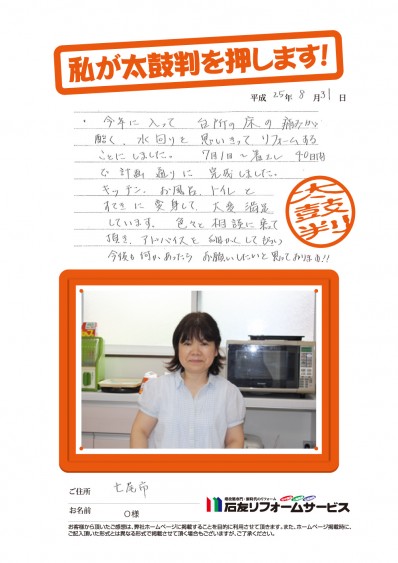 私が太鼓判を押します!
平成 25年 8月 31日
・今年に入って 台所の床の痛みが
酷く、水回りを思いきって リフォームする
ことにしました。 7月1日〜着工し 40日間
で計画通りに 完成しました。
キッチン、お風呂、トイレと
すてきに変身して、大変満足
しています。色々と相談に乗って
頂き、アドバイスを細かくして頂い
今後も何かあったら お願いしたいと思っております!!
太鼓判
ご住所 七尾市
お名前 〇様
増改築専門・創時代のリフォーム
石友リフォームサービス
お客様から頂いたご感想は、弊社ホームページに掲載することを目的に利用させて頂きます。また、ホームページ掲載時に、
ご記入頂いた形式とは異なる形式で掲載させて頂く場合もございますが、ご了承ください。